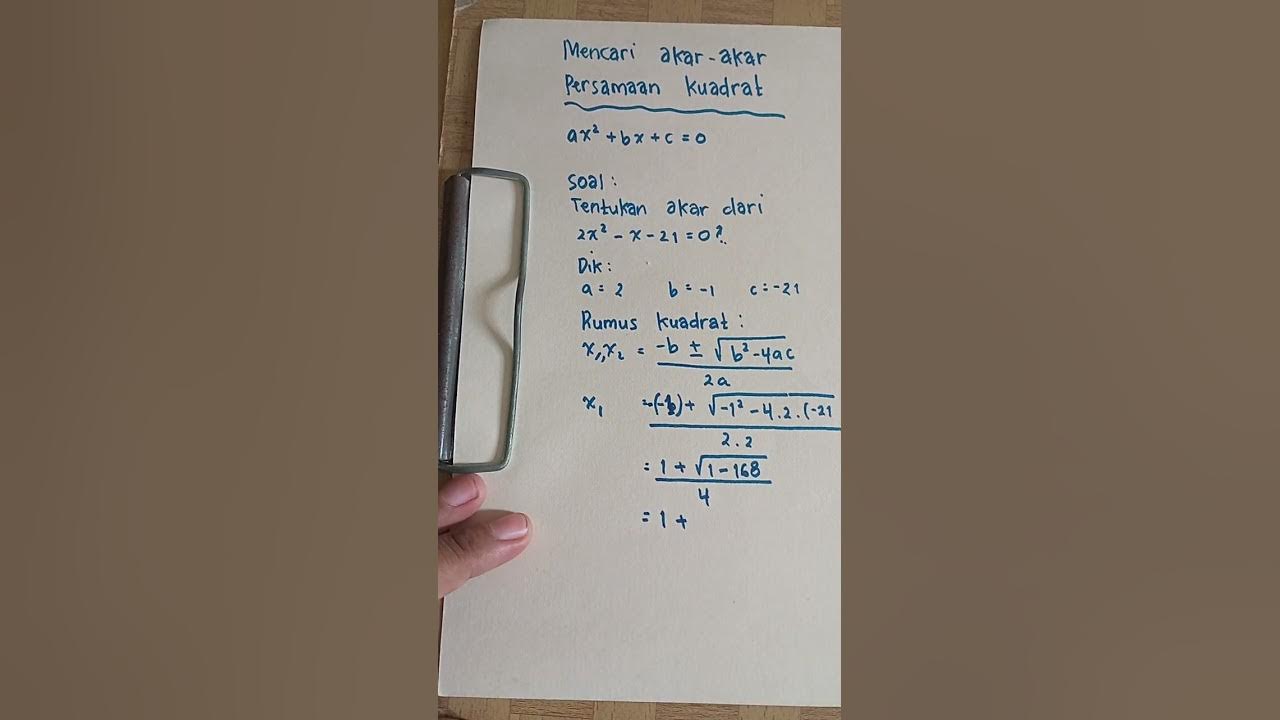 Mencari akar-akar
Persamaan kuadrat
ax² + bx + c = 0
Soal :
Tentukan akar dari
2x² - x - 21 = 0 ?
Dik :
a = 2 b = -1 c = -21
Rumus kuadrat :
x₁,x₂ = -b ± √b² - 4ac
2a
x₁ = -(-1) + √-1² - 4.2.(-21
2.2
= 1 + √1 - 168
4
= 1 +